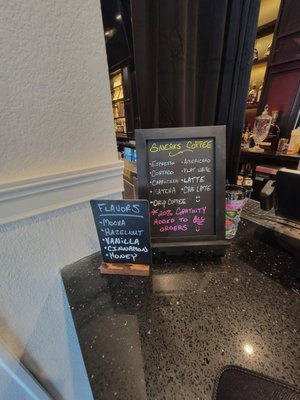 SNEAKS COFFEE
• ESPRESSO • AMERICANO
CORTADO • FLAT WHITE
CAPPUCCINO • LATTE
• MATCHA • CHAI LATTE
• DRIP COFFEE
*20% GRATUITY
ADDED TO ALL
ORDERS
FLAVORS
• MOCHA
• HAZELNUT
• VANILLA
• CINNAMON
• HONEY